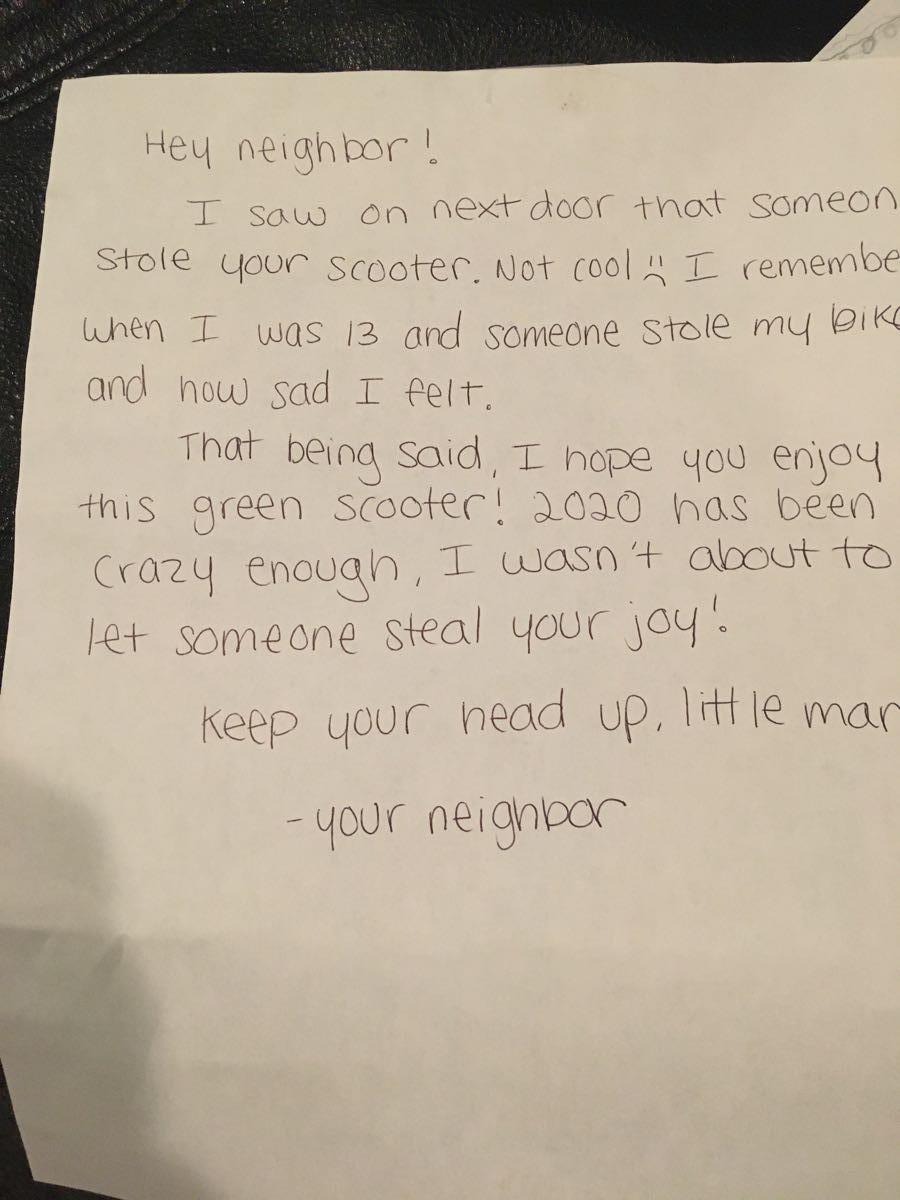 Hey neighbor!
I saw on nextdoor that someon
stole your scooter. Not cool :( I remembe
when I was 13 and someone stole my bike
and how sad I felt.
That being said, I hope you enjoy
this green scooter! 2020 has been
crazy enough, I wasn't about to
let someone steal your joy!
Keep your head up, little man
-your neighbor